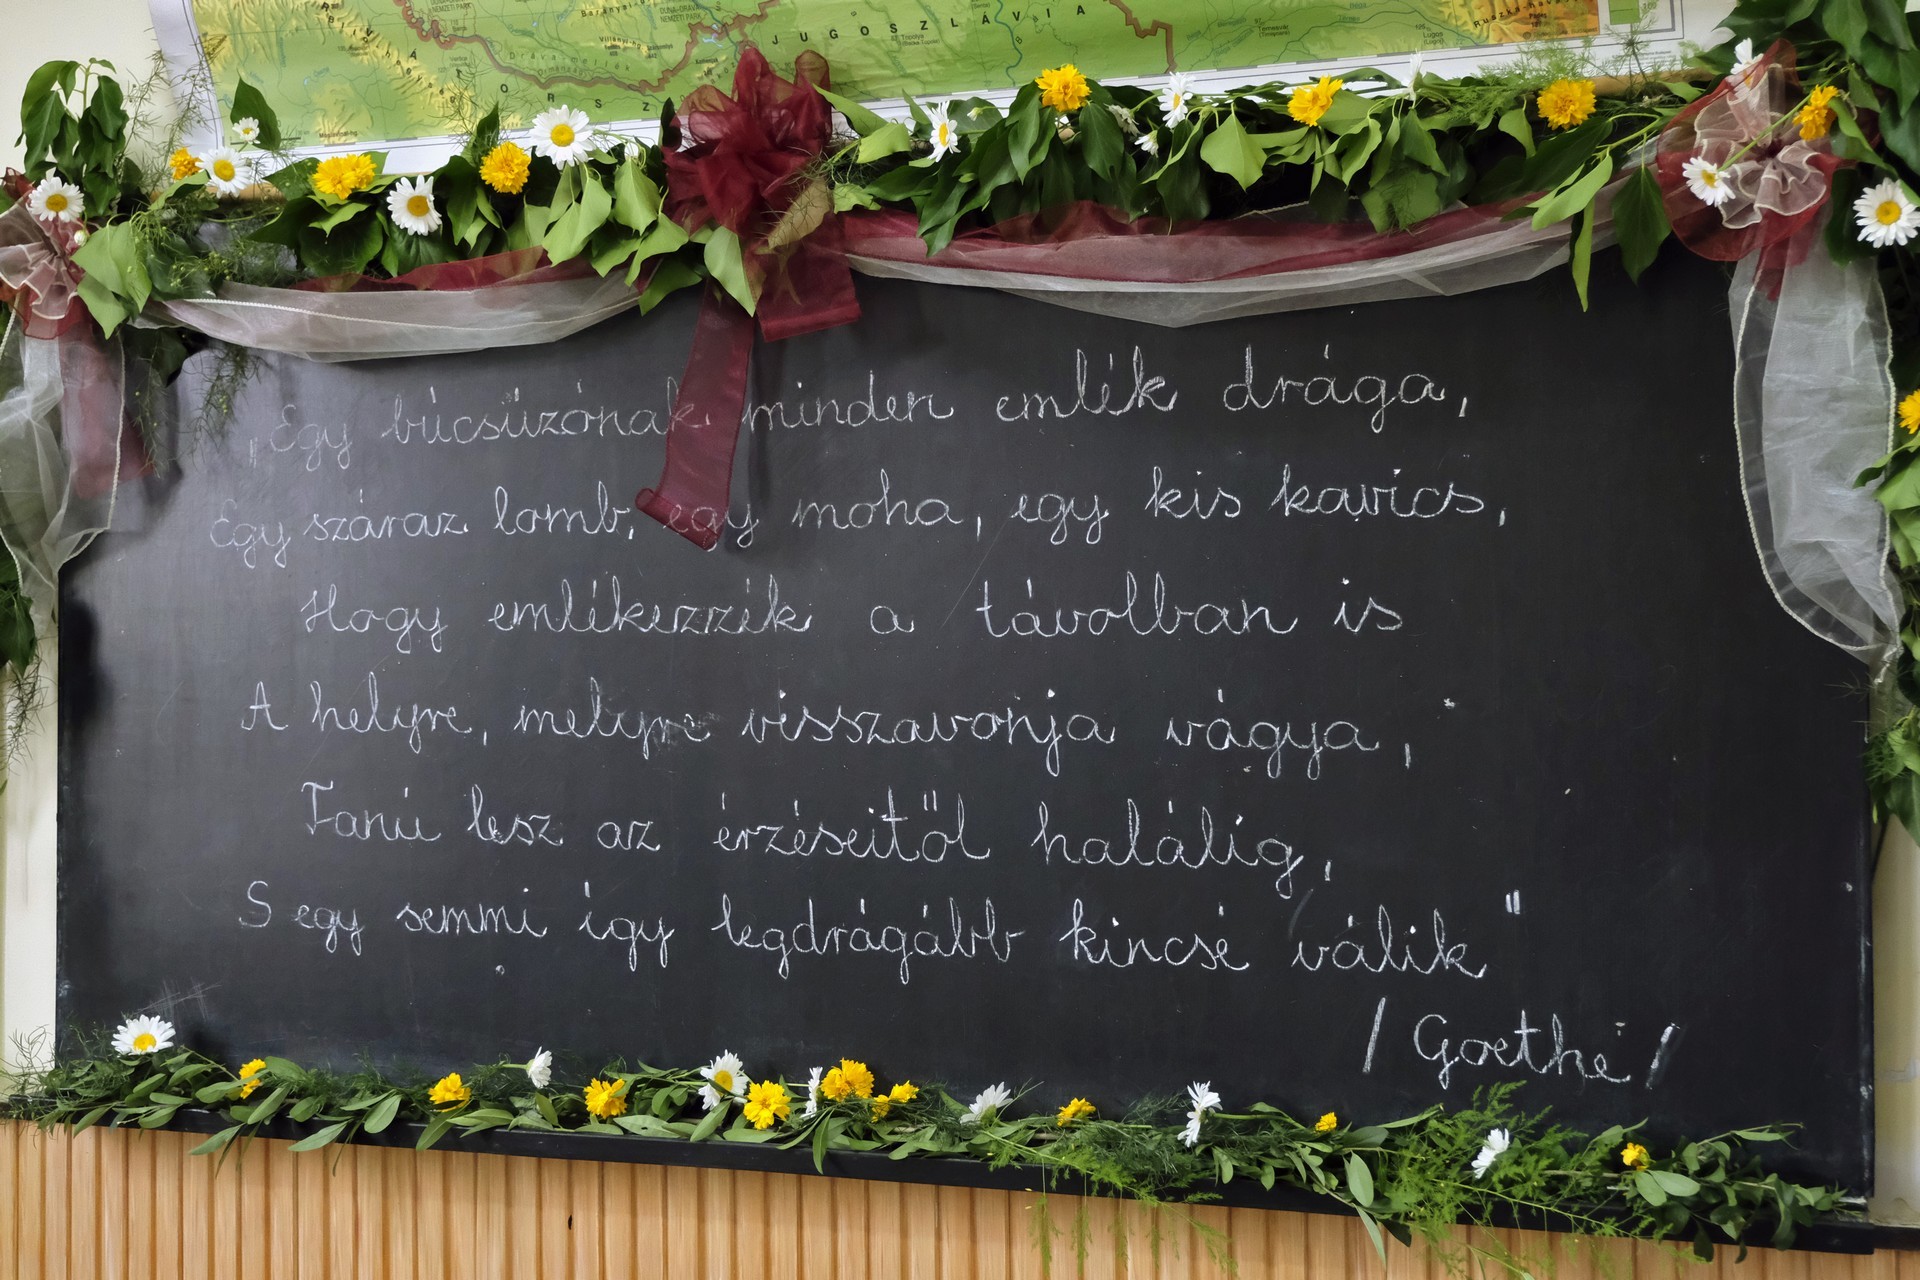 JUGOSZLÁVIA
ORSZ
„Egy búcsúzónak minden emlék drága,
Egy száraz lomb, egy moha, egy kis kavics,
Hogy emlékezzék a távolban is
A helyre, melyre visszavonja vágya,
Tanú lesz az érzéseitől halálig,
S egy semmi így legdrágább kincsé válik"
/Goethe/